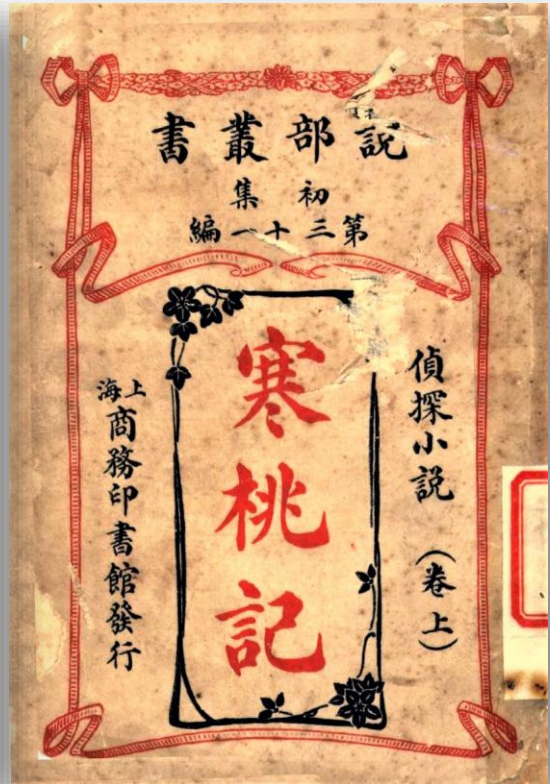 説部叢書
初集
第三十一編
偵探小説（卷上）
寒桃記
上海商務印書館發行